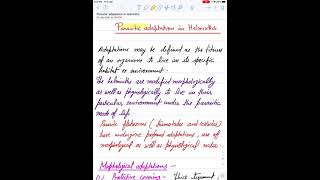 Parasitic adaptation in Helminths
Adaptations may be defined as the fitness
of an organisms to live in its specific
habitat or environment.
The helminths are modified morphologically
as well as physiologically to live in their
particular environment under the parasitic
mode of life.
Parasitic flatworms (trematodes and cestodes)
have undergone profound adaptations, are of
morphological as well as physiological nature
Morphological adaptations —
(1) Protective covering - Thick tegument